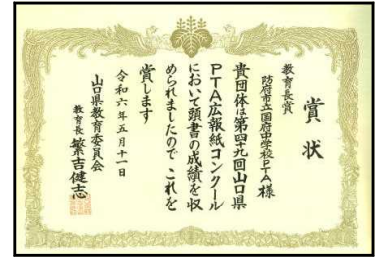 賞状
教育長賞
防府市立国府中学校PTA様
貴団体は第四十九回山口県
PTA広報紙コンクール
において頭書の成績を収
められましたので これを
賞します
令和六年五月十一日
山口県教育委員会
教育長 繁吉健志